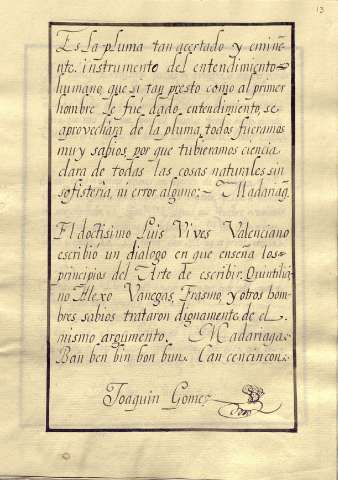 13
Es la pluma tan acertado y eminen
te instrumento del entendimiento
humano, que si tan presto como al primer
hombre le fué dado entendimiento, se
aprovechára de la pluma, todos fueramos
muy sabios, por que tubieramos ciencia
clara de todas las cosas naturales sin
sofistería, ni error alguno:~ Madariag.
El doctisimo Luis Vives Valenciano
escribió un dialogo en que enseña los
principios del Arte de escribir. Quintilia-
no Alexo Vanegas, Erasmo, y otros hom-
bres sabios trataron dignamente de el
mismo argumento. Madariaga.
Ban ben bin bon bun. Can cen cin con.
Joaquin Gomez